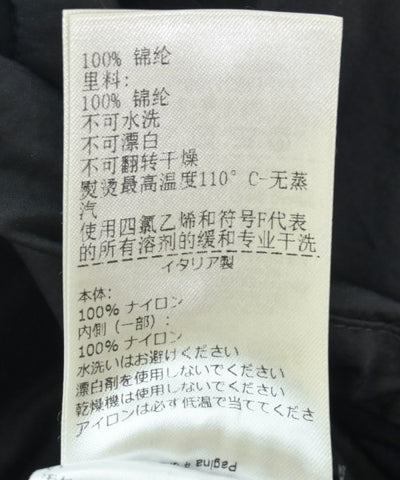 100% 锦纶
里料:
100% 锦纶
不可水洗
不可漂白
不可翻转干燥
熨烫最高温度110°C-无蒸
汽
使用四氯乙烯和符号F代表
的所有溶剂的缓和专业干洗
イタリア製
本体:
100% ナイロン
内側（一部）:
100% ナイロン
水洗いはお避けください
漂白剤を使用しないでください
乾燥機は使用しないでください
アイロンは必ず低温で当ててくださ
Pagina